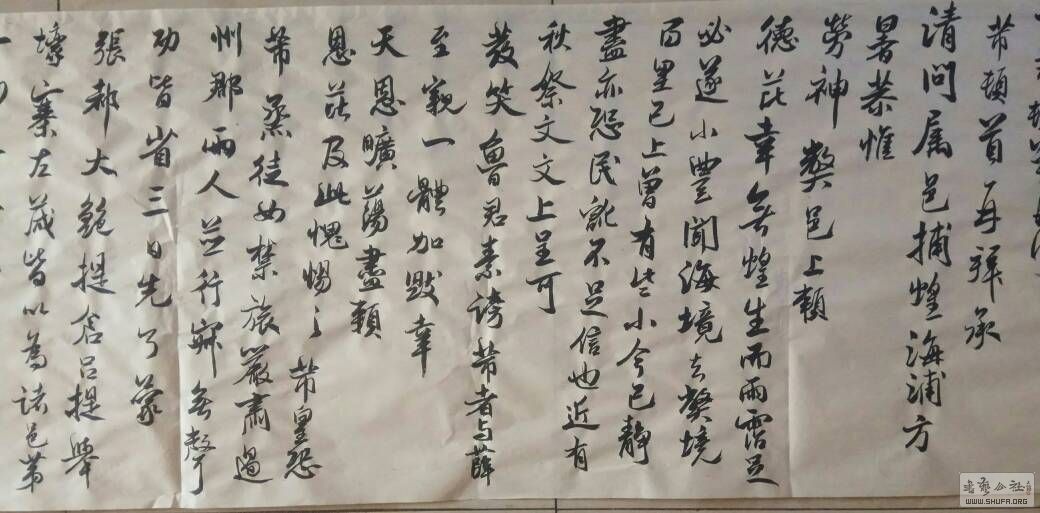 芾頓首再拜承
清問屬邑捕蝗海浦方
暑恭惟
勞神 弊邑上賴
德芘幸無蝗生而雨霑足
必遂小豐聞海境去弊境
百里已上曾有些小今已靜
盡亦恐民訛不足信也近有
秋祭文文上呈可
發笑魯君素謗芾者与薛
至親一體加毀幸
天恩曠蕩盡賴
恩芘及此愧惕之 芾皇恐
芾蒸徒如禁旅嚴肅過
州郡兩人並行寂無聲
功皆省三日先了蒙
張都大鮑提倉呂提舉
壕寨左藏皆以為諸邑第
WWW.SHUFA.ORG